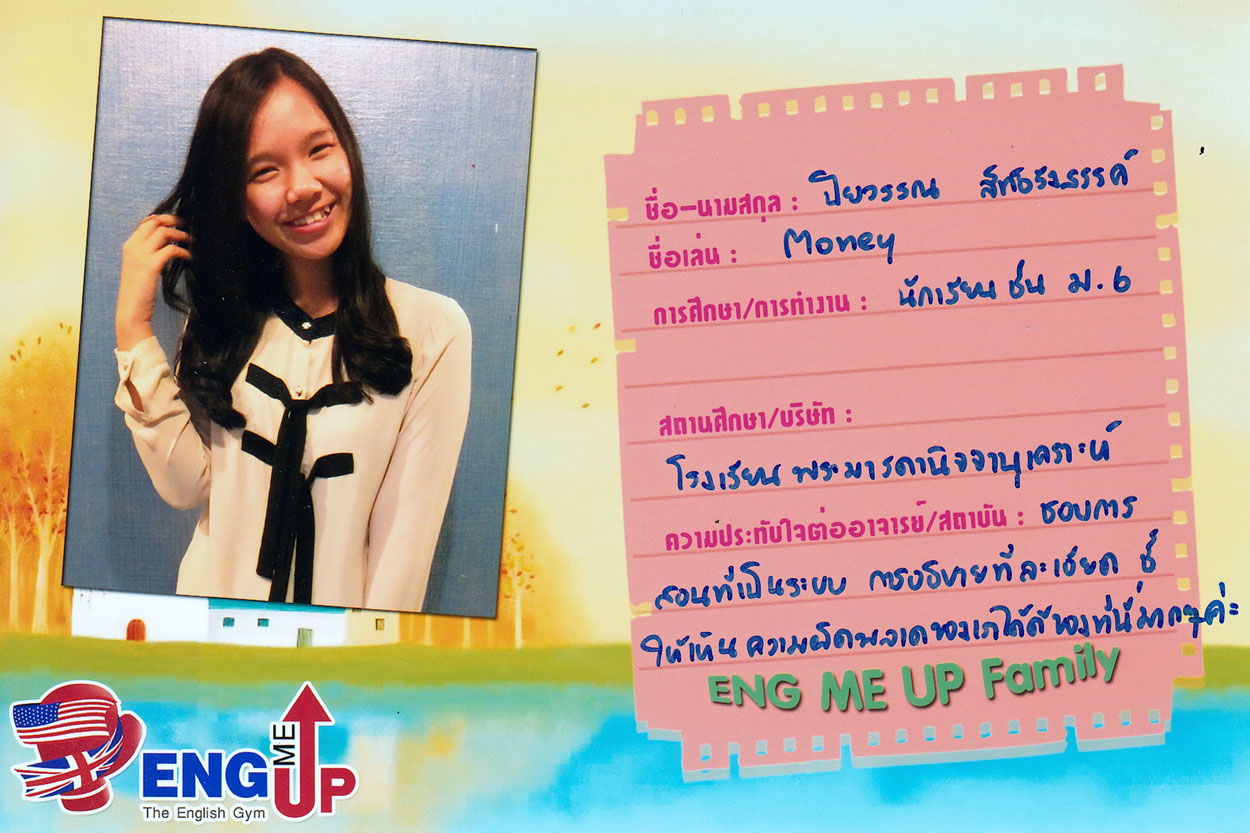 ชื่อ-นามสกุล : ปิยวรรณ
ชื่อเล่น : Money
การศึกษา/การทำงาน : นักเรียน ชั้น ม.6
สถานศึกษา/บริษัท :
โรงเรียนพระมารดานิจจานุเคราะห์
ความประทับใจต่ออาจารย์/สถาบัน : ชอบการ
สอนที่เป็นระบบ การอธิบายที่ละเอียด ชี้
ให้เห็นความผิดพลาดของเราได้ดีของที่นี่มากๆค่ะ
ENG ME UP Family
ENG ME UP
The English Gym